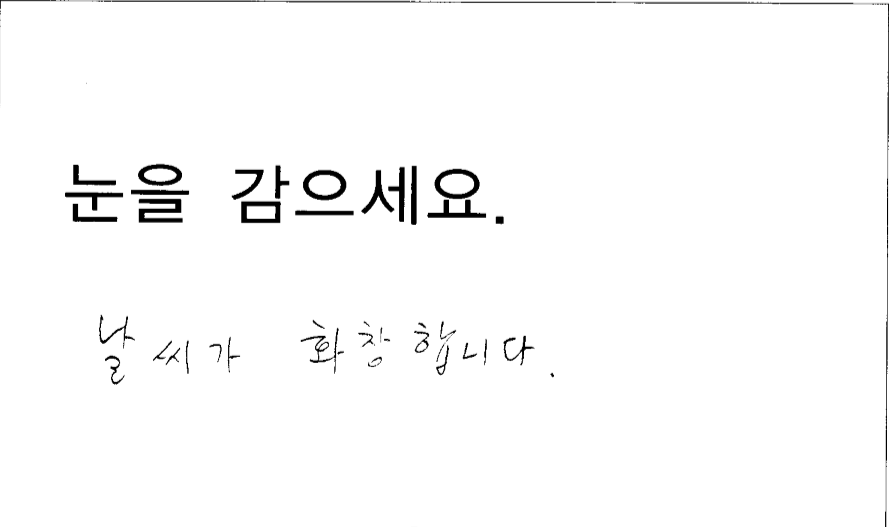 눈을 감으세요.
날씨가 화창합니다.